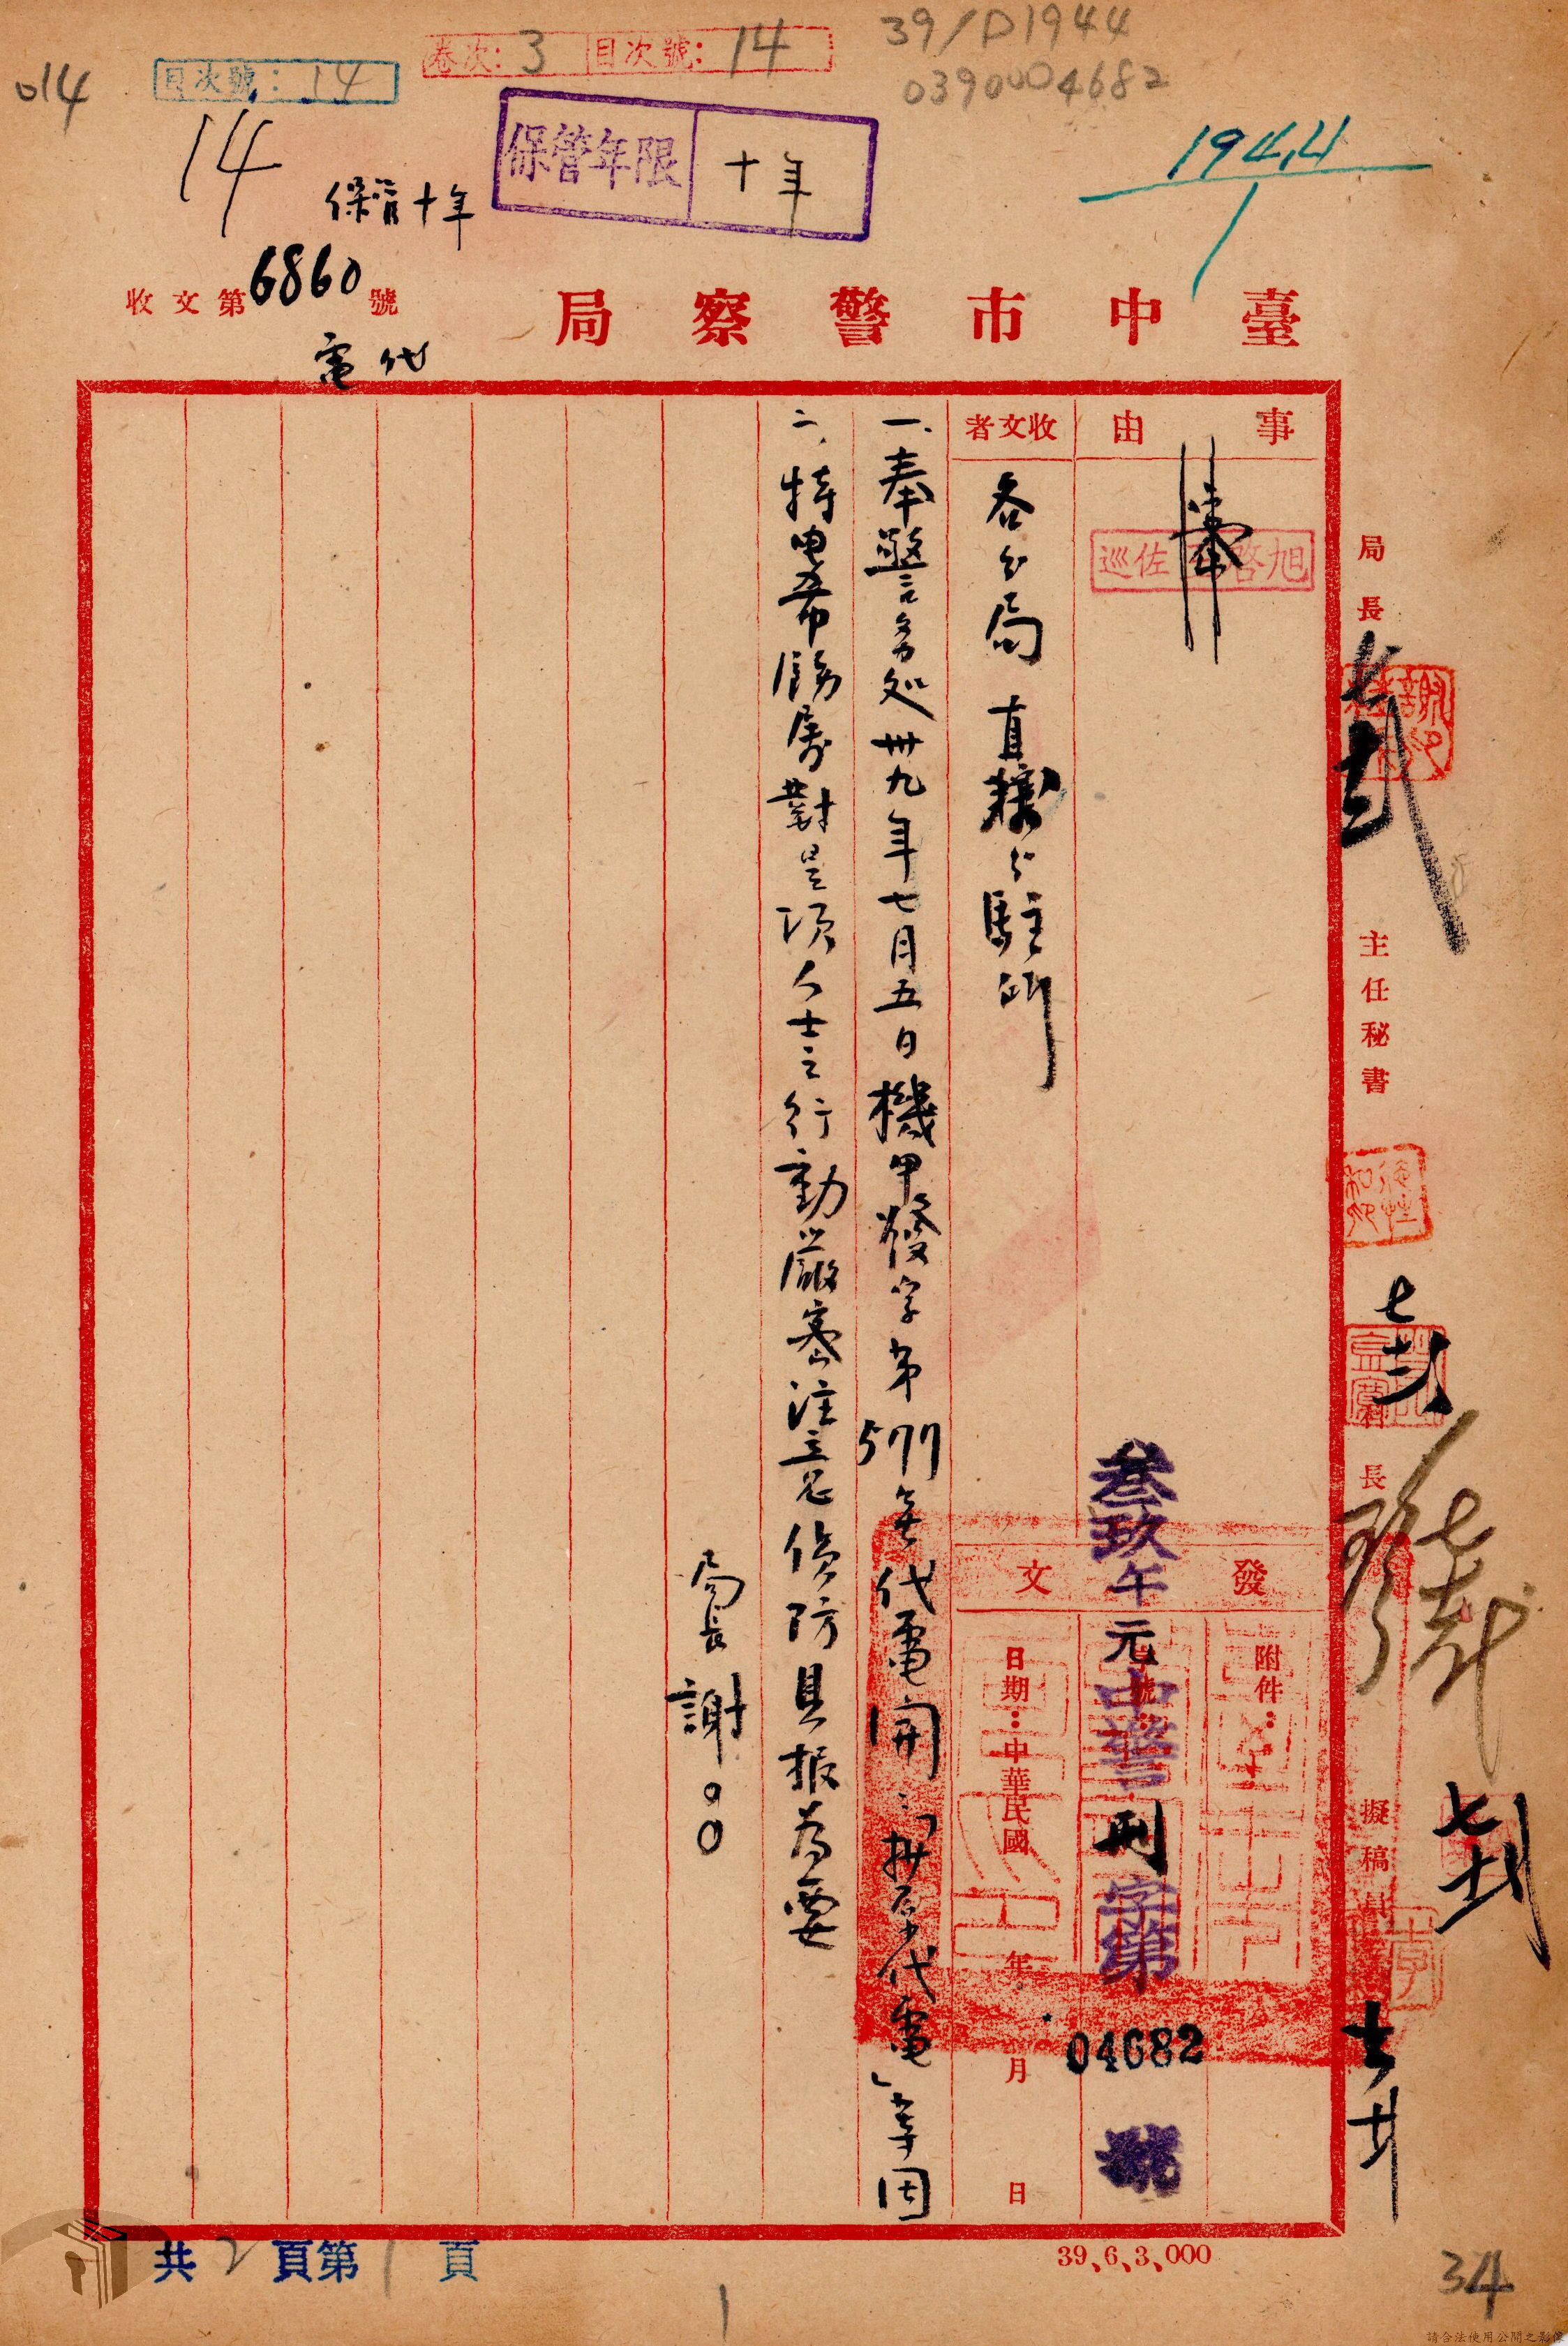 014
目次號：14
卷次：3 目次號：14
39/D1944
0390004682
14
保管十年
保管年限 十年
1944
1
收文第6860號
臺中市警察局
代電
事由
奉
收文者
各分局 直轄分駐所
一、奉警務処卅九年七月五日機甲發字第577號代電開：「抄原代電」等因
二、特电希飭屬對是項人士之行動嚴密注意偵防具报為要
局長 謝○○
發文
附件：
叁玖午元中警刑字第04682號
日期：中華民國 年 月 日
局長
主任秘書
長
擬稿員
共2頁第1頁
39、6、3、000
34
1
請合法使用公開之影像